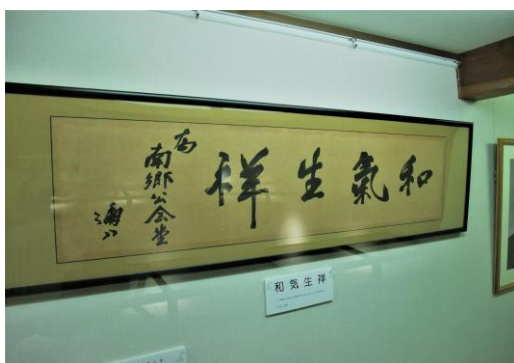 和氣生祥
為
南郷公会堂
和気生祥